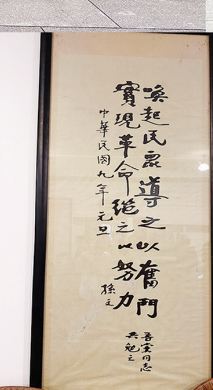 喚起民眾導之以奮鬥
實現革命繼之以努力
中華民國九年元旦
孫文
吾黨同志
共勉之